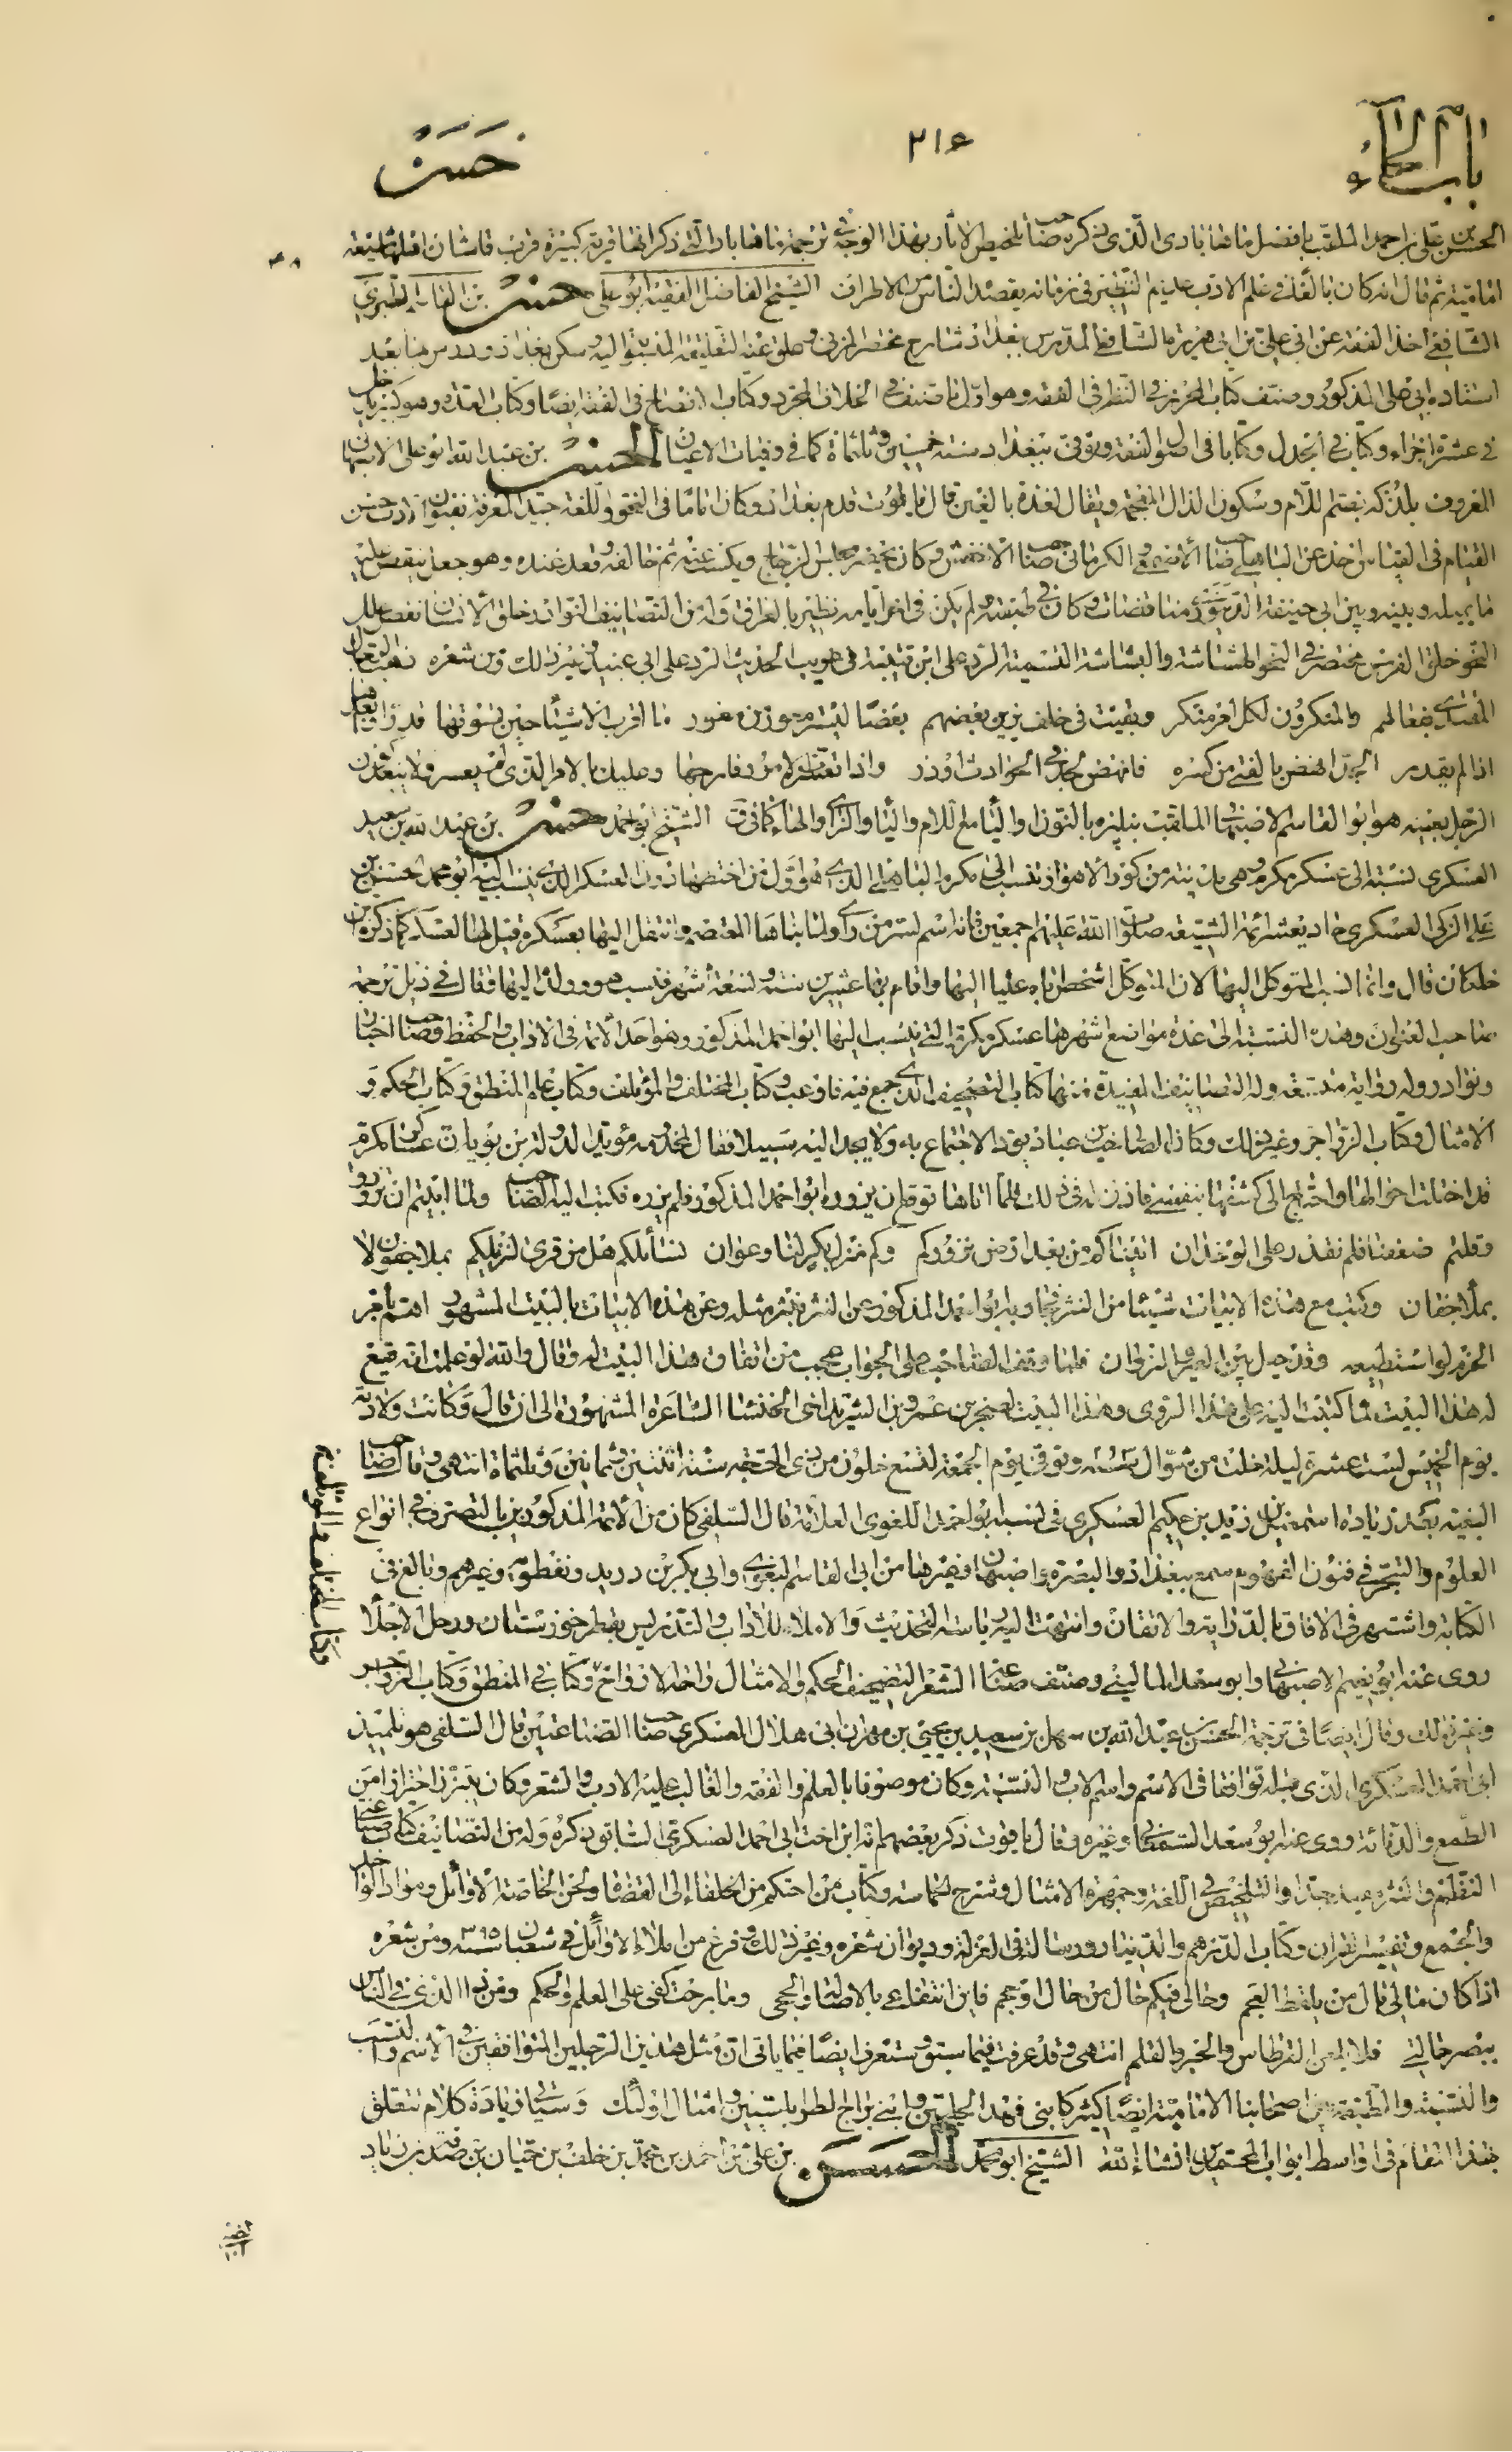 باب الحاء
٢١٤
حسن
الحسن بن علي بن احمد الملقب بافضل الذي ذكره صاحب تلخيص الاثار بهذا الوجه في ترجمة التي ذكر انها قرية كبيرة قرب قاشان اهلها شيعة
امامية ثم قال انه كان بالغا في علم الادب عديم النظير في زمانه يقصده الناس من الاطراف الشيخ الفاضل الفقيه ابو علي حسن بن القاسم الطبري
الشافعي اخذ الفقه عن ابي علي بن ابي هريرة الشافعي المدرس ببغداد شارح مختصر المزني وعلق عنه التعليقة المنسوبة اليه وسكن بغداد ودرس بها بعد
استاده ابي علي المذكور وصنف كتاب المحرر في النظر في الفقه وهو اول ما صنف في الخلاف المجرد وكتاب الافصاح في الفقه ايضا وكتاب العدة وهو كبير يدخل
في عشرة اجزاء وكتابا في الجدل وكتابا في اصول الفقه وتوفي ببغداد سنة خمسين وثلثمائة كما في وفيات الاعيان الحسن بن عبد الله ابو علي الاصبهاني
المعروف بلذكه بضم اللام وسكون الذال المعجمة ويقال لغذة بالغين قال ياقوت قدم بغداد وكان اماما في النحو واللغة جيد المعرفة بفنون الادب حسن
القيام في القياس اخذ عن الباهلي صاحب الاصمعي والكرماني صاحب الاخفش وكان يحضر مجلس الزجاج ويكتب عنه ثم خالفه وقعد عنده وهو جعل ينقض عليه
ما يمليه وبينه وبين ابي حنيفة الدينوري مناقضات وكان في طبقته ولم يكن في اخر ايامه نظير بالعراق وله من التصانيف النوادر خلق الانسان نقض علل
النحو خلق الفرس مختصر في النحو الهشاشة والبشاشة التسمية الرد على ابن قتيبة في غريب الحديث الرد على ابي عبيد وغير ذلك ومن شعره ذهب الرجال
المقتدى بفعالهم والمنكرون لكل امر منكر وبقيت في خلف يزين بعضهم بعضا ليستر معور من معور ما اقرب الاشياء حين يسوقها قدر وابعدها
اذا لم يقدر الجد انهض بالفتى من كسبه فانهض بجد في الحوادث او ذر واذا تعسرت الامور فارجها وعليك بالامر الذي لم يعسر ولا يبعد كون
الرجل بعينه هو ابو القاسم الاصبهاني الملقب بنيلزه بالنون والياء مع اللام والياء والزاي والهاء كما في ق الشيخ ابو احمد حسن بن عبد الله بن سعيد
العسكري نسبته الى عسكر مكرم وهي مدينة من كور الاهواز وتنسب الى مكرم الباهلي الذي هو اول من اختطها دون العسكر الذي ينسب اليه ابو محمد حسن بن
علي الزكي العسكري حاديعشر ائمة الشيعة صلوات الله عليهم اجمعين فانه اسم لسر من راى ولما بناها المعتصم وانتقل اليها بعسكره قيل لها العسكر كما ذكره ابن
خلكان قال وانما نسب المتوكل اليها لان المتوكل اشخص اباه عليا اليها واقام بها عشرين سنة وتسعة اشهر فنسب هو وولده اليها فقال في ذيل ترجمة
صاحب العنوان وهذه النسبة الى عدة مواضع اشهرها عسكر مكرم التي ينسب اليها ابو احمد المذكور وهو احد الائمة في الاداب والحفظ وصاحب اخبار
ونوادر وله رواية متسعة وله التصانيف المفيدة منها كتاب التصحيف الذي جمع فيه فاوعب وكتاب المختلف والمؤتلف وكتاب علم المنطق وكتاب الحكم و
الامثال وكتاب الزواجر وغير ذلك وكان الصاحب بن عباد يود الاجتماع به ولا يجد اليه سبيلا فقال لمخدومه مؤيد الدولة بن بويه ان عسكر مكرم
قد اختلت احوالها واحتاج الى كشفها بنفسي فاذن له في ذلك فلما اتاها توقع ان يزوره ابو احمد المذكور فلم يزره فكتب اليه الصاحب ولما ابيتم ان تزوروا
وقلتم ضعفنا فلم نقدر على الوخدان اتيناكم من بعد ارض نزوركم وكم منزل بكر لنا وعوان نسائلكم هل من قرى لنزيلكم بملا جفون لا
بملا جفان وكتب مع هذه الابيات شيئا من النثر فجاوبه ابو احمد المذكور عن النثر بنثر مثله وعن هذه الابيات بالبيت المشهور اهم بامر
الحزم لو استطيعه وقد حيل بين العير والنزوان فلما وقف الصاحب على الجواب عجب من اتفاق هذا البيت له وقال والله لو علمت انه يقع
له هذا البيت لما كتبت اليه على هذا الروى وهذا البيت لصخر بن عمرو بن الشريد اخي الخنساء الشاعرة المشهورة الى ان قال وكانت ولادته
يوم الخميس لست عشرة ليلة خلت من شوال وتوفي يوم الجمعة لتسع خلون من ذي الحجة سنة اثنتين وثمانين وثلثمائة انتهى وقال صاحب
البغية بعد زيادة اسمعيل بن زيد بن حكيم العسكري في نسبه ابو احمد اللغوي العلامة قال السلفي كان من الائمة المذكورين بالتصرف في انواع
العلوم والتبحر في فنون الفهوم سمع ببغداد والبصرة واصبهان وغيرها من ابي القاسم البغوي وابي بكر بن دريد ونفطويه وغيرهم وبالغ في
الكتابة واشتهر في الافاق بالدراية والاتقان وانتهت اليه رياسة التحديث والاملاء للاداب والتدريس بقطر خوزستان ورحل لاجلا
روى عنه ابو نعيم الاصبهاني وابو سعد الماليني وصنف صناعة الشعر التصحيف الحكم والامثال راحة الارواح وكتابا في المنطق وكتاب الزواجر
وغير ذلك وقال ايضا في ترجمة الحسن بن عبد الله بن سهل بن سعيد بن يحيى بن مهران ابي هلال العسكري صاحب الصناعتين قال السلفي هو تلميذ
ابي احمد العسكري الذي قبله توافقا في الاسم واسم الاب والنسبة وكان موصوفا بالعلم والفقه والغالب عليه الادب والشعر وكان يتبزز احترازا من
الطمع والدنائة روى عنه ابو سعد السمان وغيره وقال ياقوت ذكر بعضهم انه ابن اخت ابي احمد العسكري السابق ذكره وله من التصانيف كتاب صناعتي
النظم والنثر مفيد جدا والتلخيص في اللغة وجمهرة الامثال وشرح الحماسة وكتاب من احتكم من الخلفاء الى القضاة ولحن الخاصة الاوائل ونوادر الواحد
والجمع وتفسير القران وكتاب الدرهم والدينار ورسالة في العزلة وديوان شعره وغير ذلك وفرغ من املاء الاوائل في شعبان سنة ٣٩٥ ومن شعره
اذا كان مالي مال من يلقط العجم وحالي فيكم حال من حاك او حجم فاين انتفاعي بالاصالة والحجى وما ربحت كفي على العلم والحكم ومن ذا الذي في الناس
يبصر حالتي فلا يلعن القرطاس والحبر والقلم انتهى وقد عرفت فيما سبق وستعرف ايضا فيما ياتي ان مثل هذين الرجلين المتوافقين في الاسم والنسب
والنسبة والطبقة من اصحابنا الامامية ايضا كثير كابني فهد الحليين وابني براج الطرابلسيين وامثال اولئك وسياتي زيادة كلام تتعلق
بهذا المقام في اواسط ابواب المحمدين انشاء الله الشيخ ابو محمد الحسن بن علي بن احمد بن محمد بن خلف بن حيان بن صدقة بن زياد